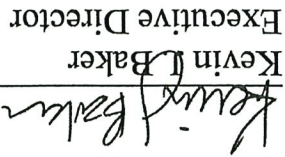 Kevin J Baker
Kevin I. Baker
Executive Director